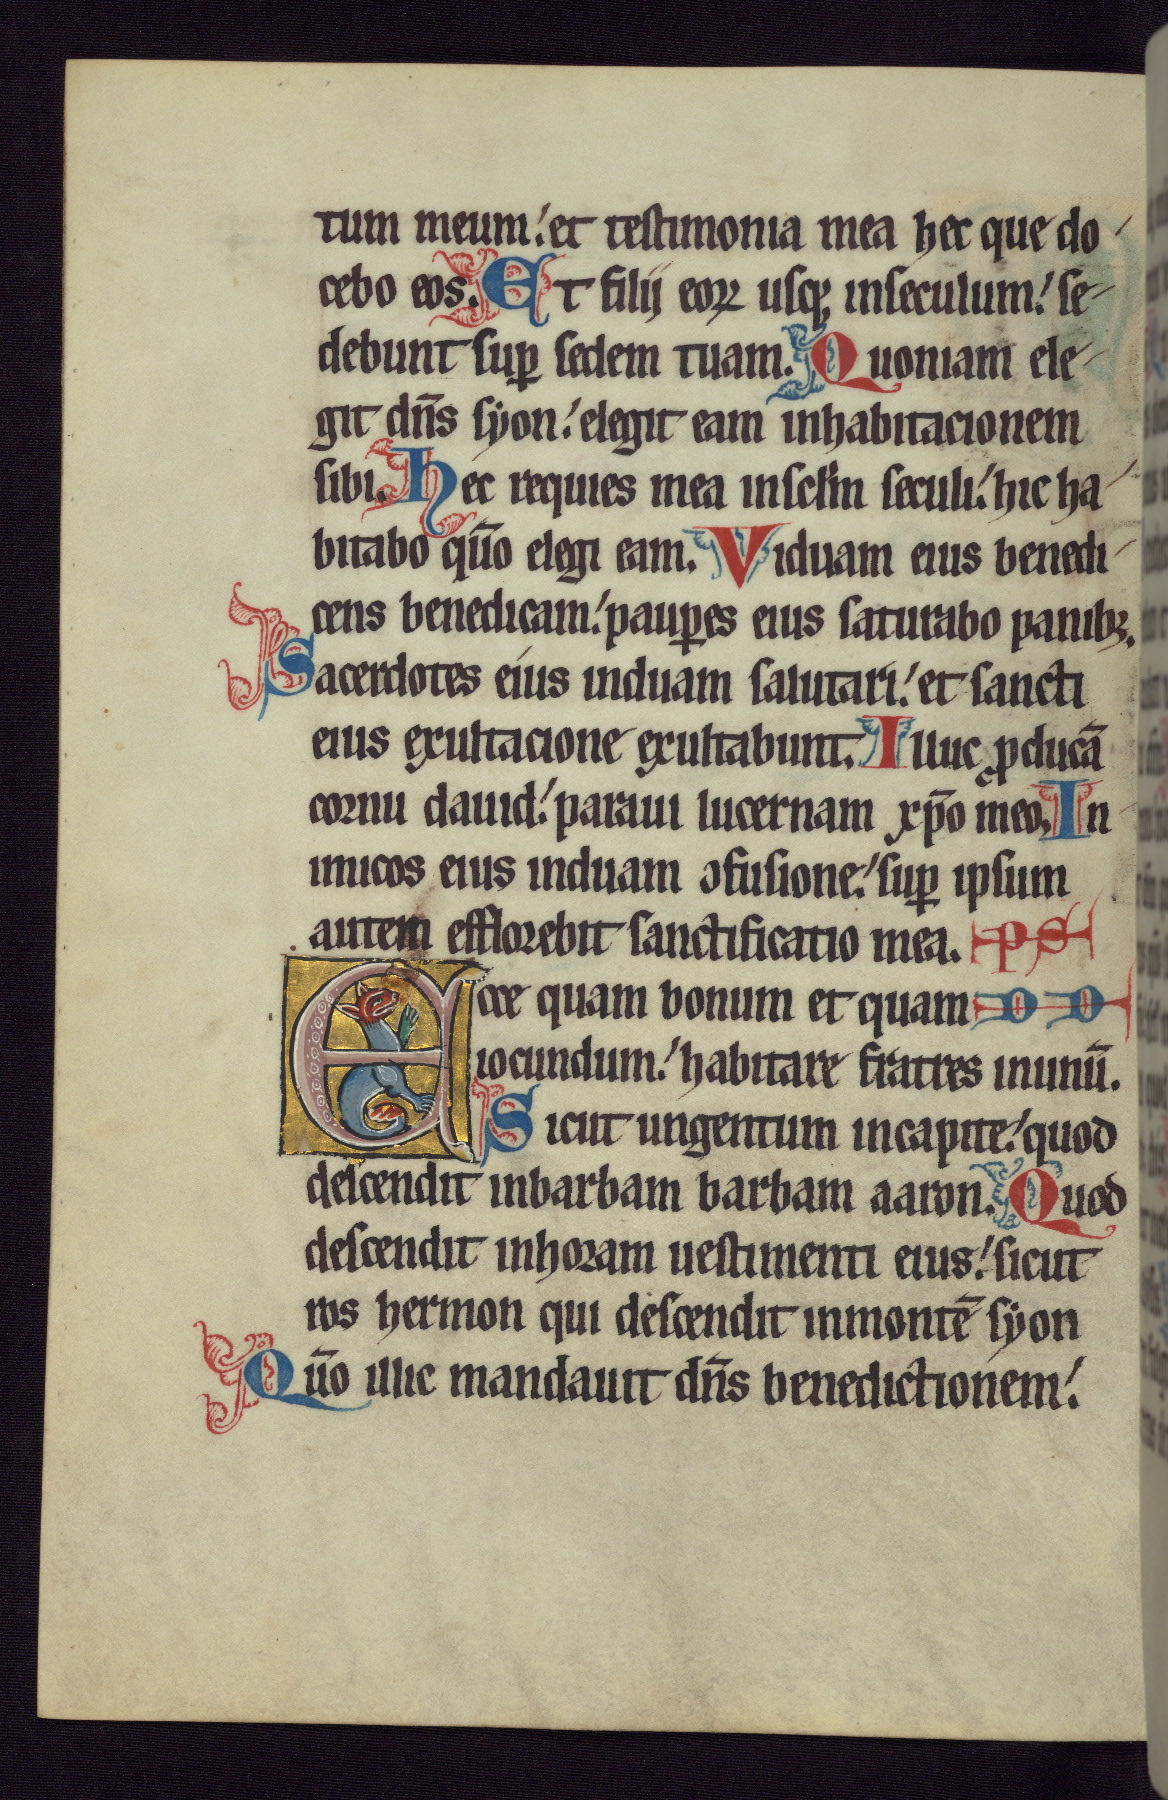 tum meum: et testimonia mea hec que do
cebo eos. Et filij eoꝝ usqꝫ inseculum: se
debunt suꝑ sedem tuam. Quoniam ele
git dn̄s syon: elegit eam inhabitacionem
sibi. Hec requies mea insclm̄ seculi: hic ha
bitabo qūo elegi eam. Viduam eius benedi
cens benedicam: pauꝑes eius saturabo panibꝫ.
Sacerdotes eius induam salutari: et sancti
eius exultacione exultabunt. Illuc ꝓducā
cornu dauid: paraui lucernam xp̄o meo. In
imicos eius induam ɔfusione: suꝑ ipsum
autem efflorebit sanctificatio mea. ps
Ecce quam bonum et quam
iocundum: habitare fratres inunū.
Sicut ungentum incapite: quod
descendit inbarbam barbam aaron. Quod
descendit inhoram uestimenti eius: sicut
ros hermon qui descendit inmontē syon
Qūo illic mandauit dn̄s benedictionem: